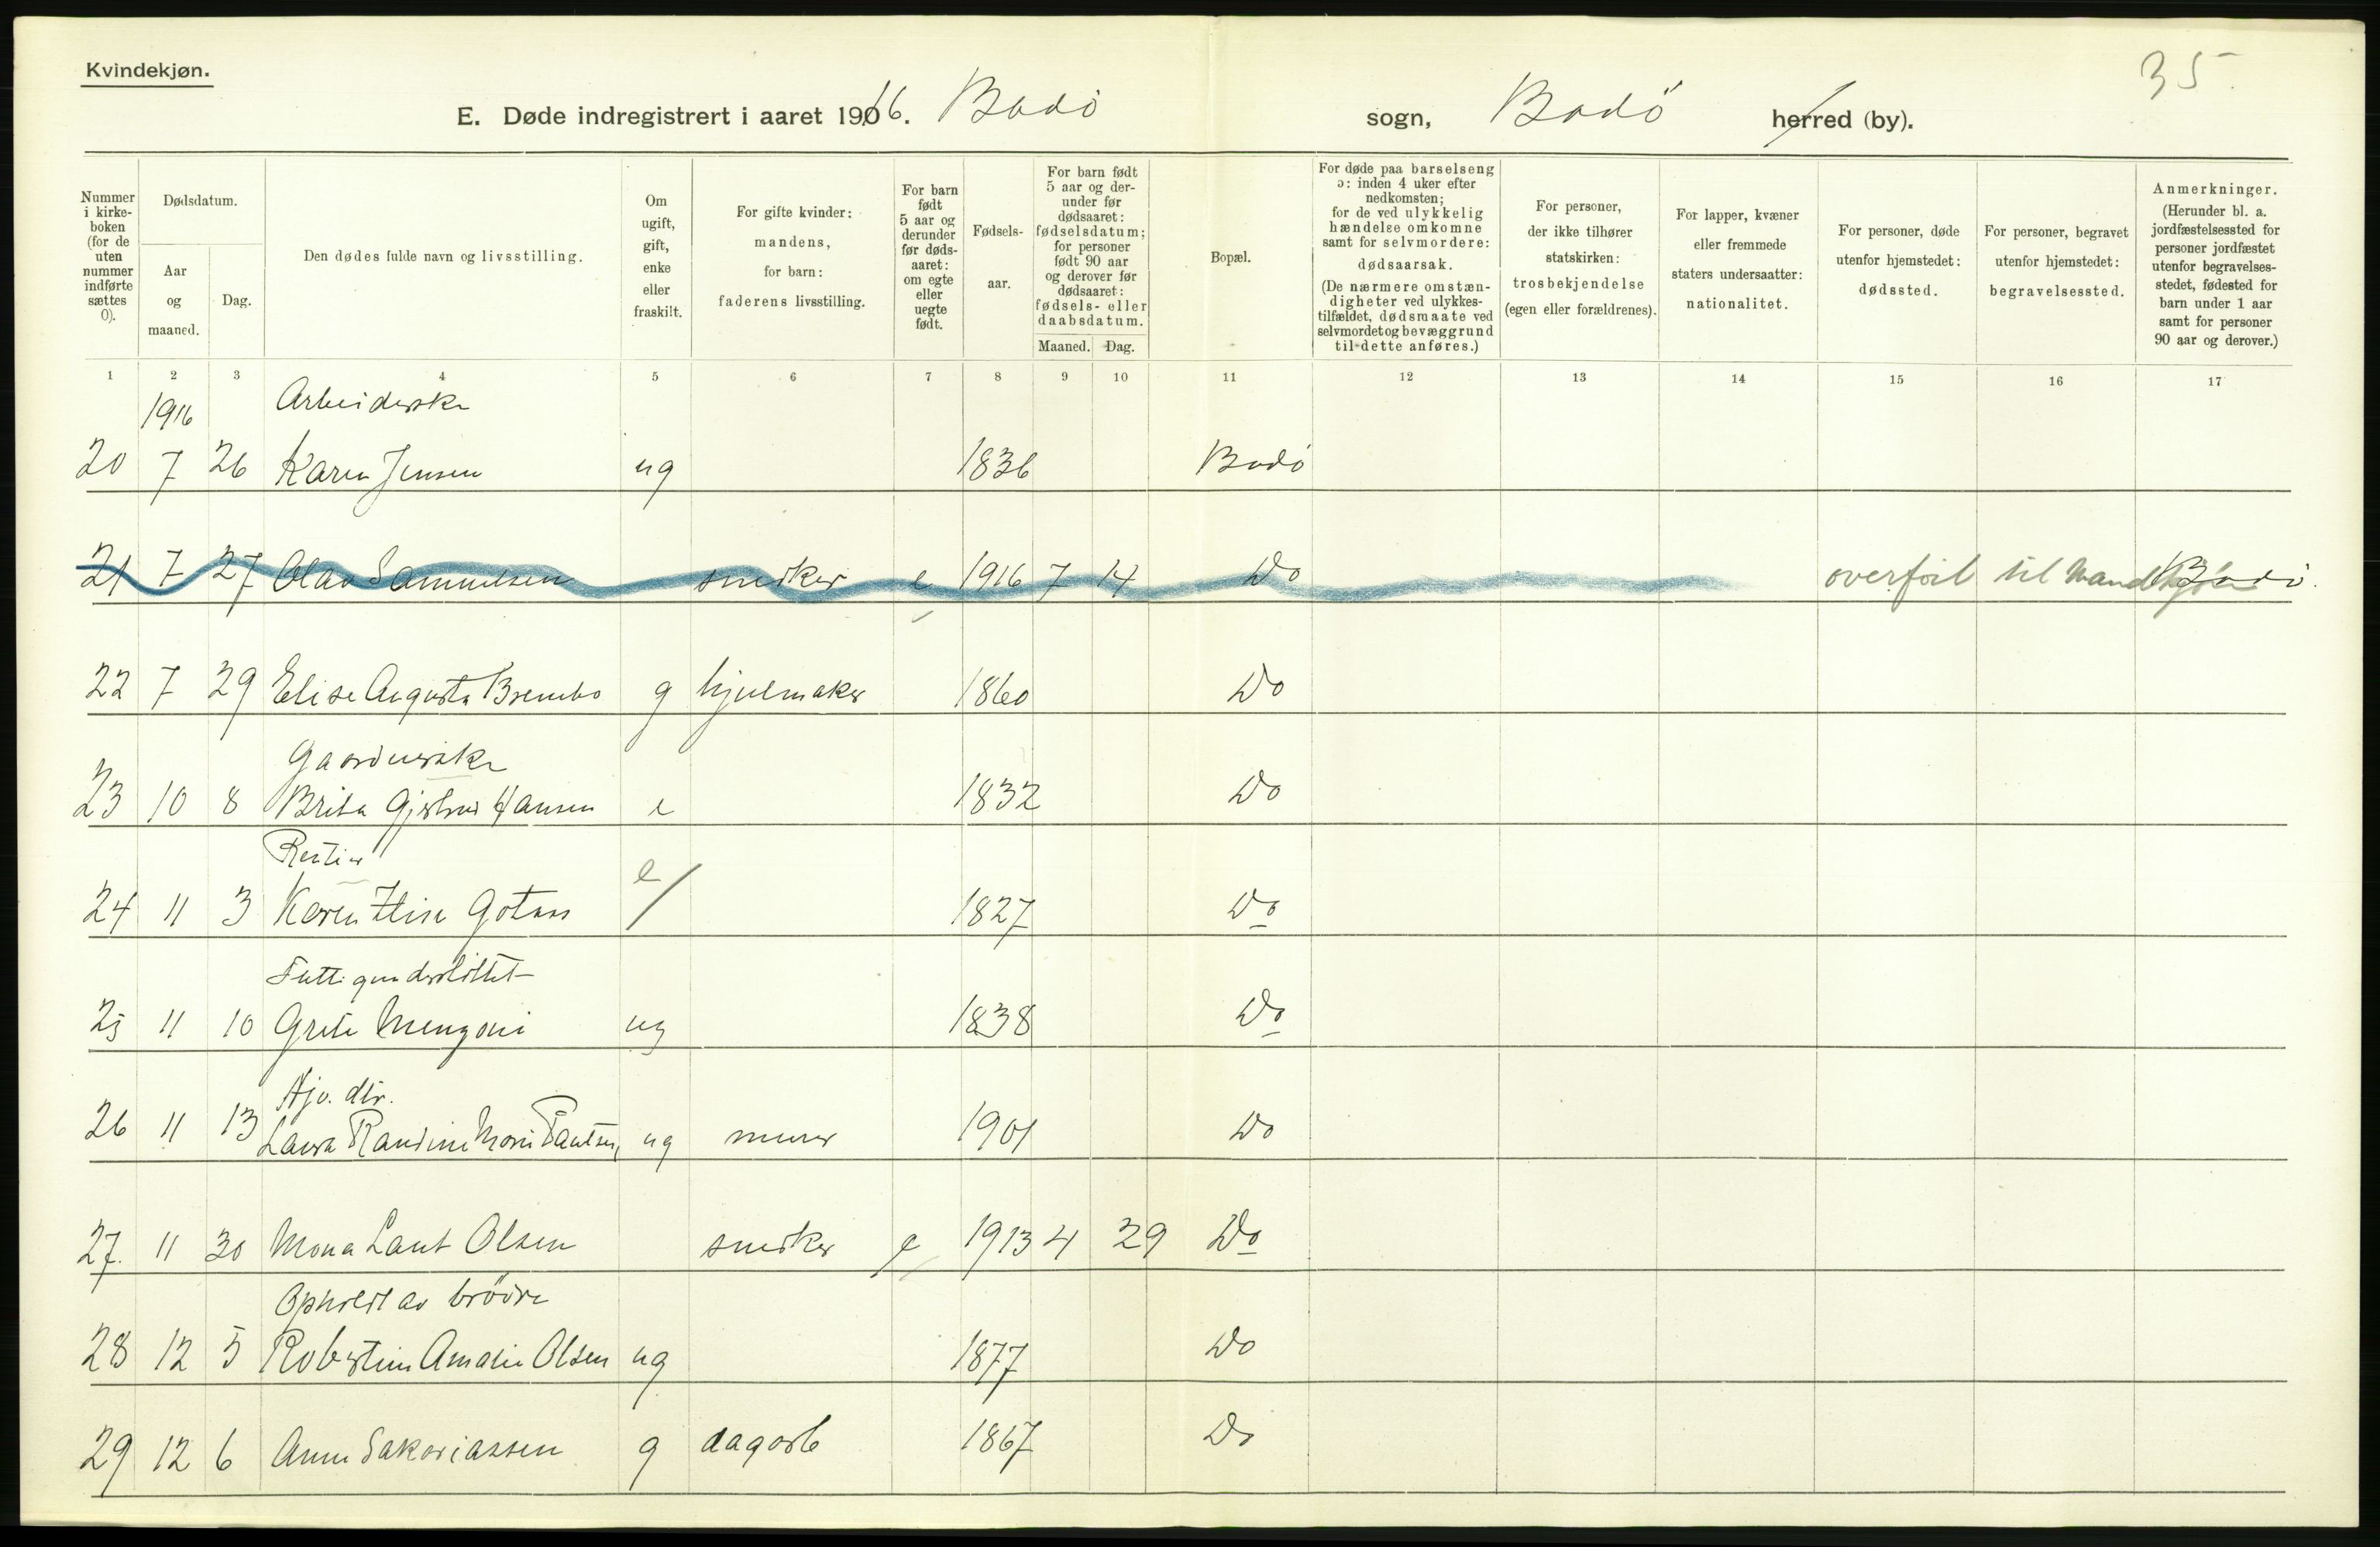 Kvindekjøn.
35.
E. Døde indregistrert i aaret 1916. Bodö sogn, Bodö herred (by).
Nummer i kirkeboken (for de uten nummer indførte sættes 0).
Dødsdatum.
Aar og maaned.
Dag.
Den dødes fulde navn og livsstilling.
Om ugift, gift, enke eller fraskilt.
For gifte kvinder: mandens, for barn: faderens livsstilling.
For barn født 5 aar og derunder før dødsaaret: om egte eller uegte født.
Fødselsaar.
For barn født 5 aar og derunder før dødsaaret: fødselsdatum; for personer født 90 aar og derover før dødsaaret: fødsels- eller daabsdatum.
Maaned. Dag.
Bopæl.
For døde paa barselseng ɔ: inden 4 uker efter nedkomsten; for de ved ulykkelig hændelse omkomne samt for selvmordere: dødsaarsak.
(De nærmere omstændigheter ved ulykkestilfældet, dødsmaate ved selvmordet og bevæggrund til dette anføres.)
For personer, der ikke tilhører statskirken: trosbekjendelse (egen eller forældrenes).
For lapper, kvæner eller fremmede staters undersaatter: nationalitet.
For personer, døde utenfor hjemstedet: dødssted.
For personer, begravet utenfor hjemstedet: begravelsessted.
Anmerkninger.
(Herunder bl. a. jordfæstelsessted for personer jordfæstet utenfor begravelsesstedet, fødested for barn under 1 aar samt for personer 90 aar og derover.)
1 2 3 4 5 6 7 8 9 10 11 12 13 14 15 16 17
1916 Arbeiderske
20 7 26 Karen Jensen ug 1836 Bodö
21 7 27 Olav Samuelsen snedker e 1916 7 14 Do overfört til Mandkjön Bodö.
22 7 29 Elise Augusta Brembo g hjulmaker 1860 Do
23 10 8 Brita Hansen e 1832 Do
24 11 3 Karen Elise Gotaas e / 1827 Do
Fattigunderstöttet
25 11 10 Grete ug 1838 Do
Hjv. dtr.
26 11 13 Laura Randine Marie ug murer 1901 Do
27. 11 30 Mona Laut Olsen snedker e 1913 4 29 Do
Opholdt av brödre
28 12 5 Robertine Amalie Olsen ug 1877 Do
29 12 6 Anne Sakariassen g dagarb 1867 Do